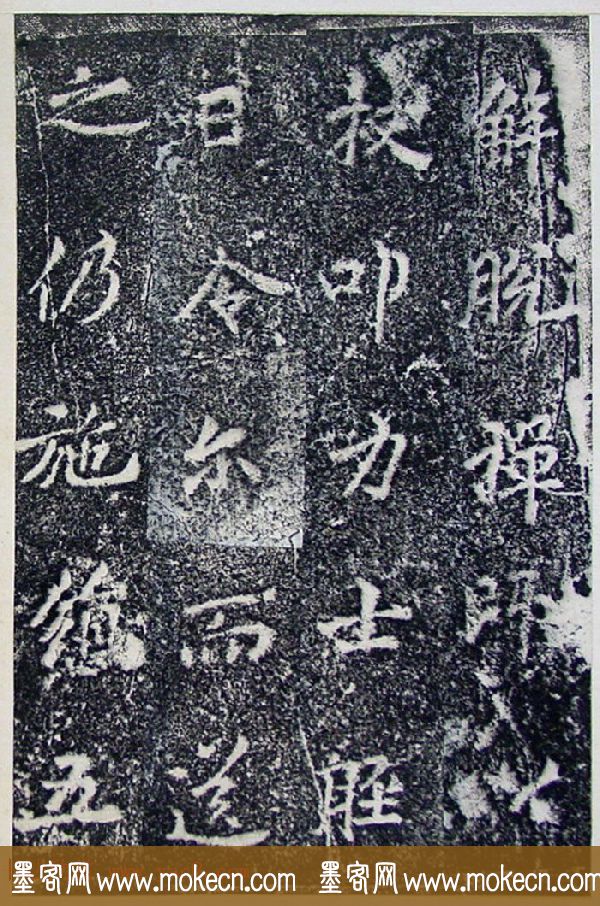 解脱禪師以
杖叩力士脛
曰令尔而送
之仍施五
墨客网 www.mokecn.com 墨客网 www.mokecn.com